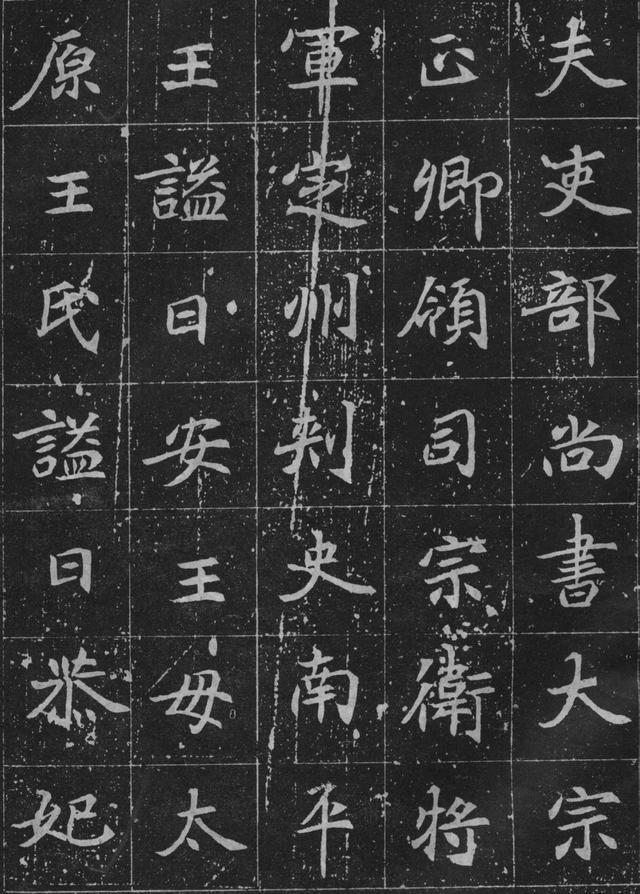 夫吏部尚書大宗
正卿領司宗衛将
軍定州刾史南平
王謚曰安王毋太
原王氏謚曰恭妃